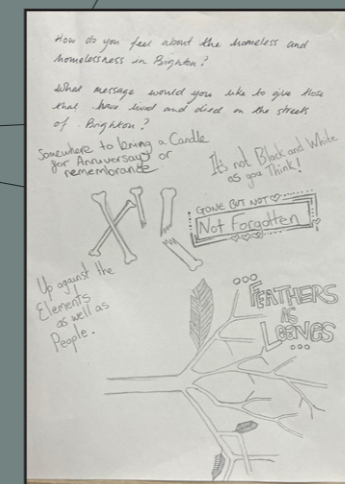 How do you feel about the homeless and
homelessness in Brighton?
What message would you like to give those
that have lived and died on the streets
of Brighton?
Somewhere to bring a Candle
for Anniversary or
remembrance
It's not Black and White
as you Think!
GONE BUT NOT
Not Forgotten
Up against the
Elements
as well as
People.
FEATHERS
AS
LEAVES